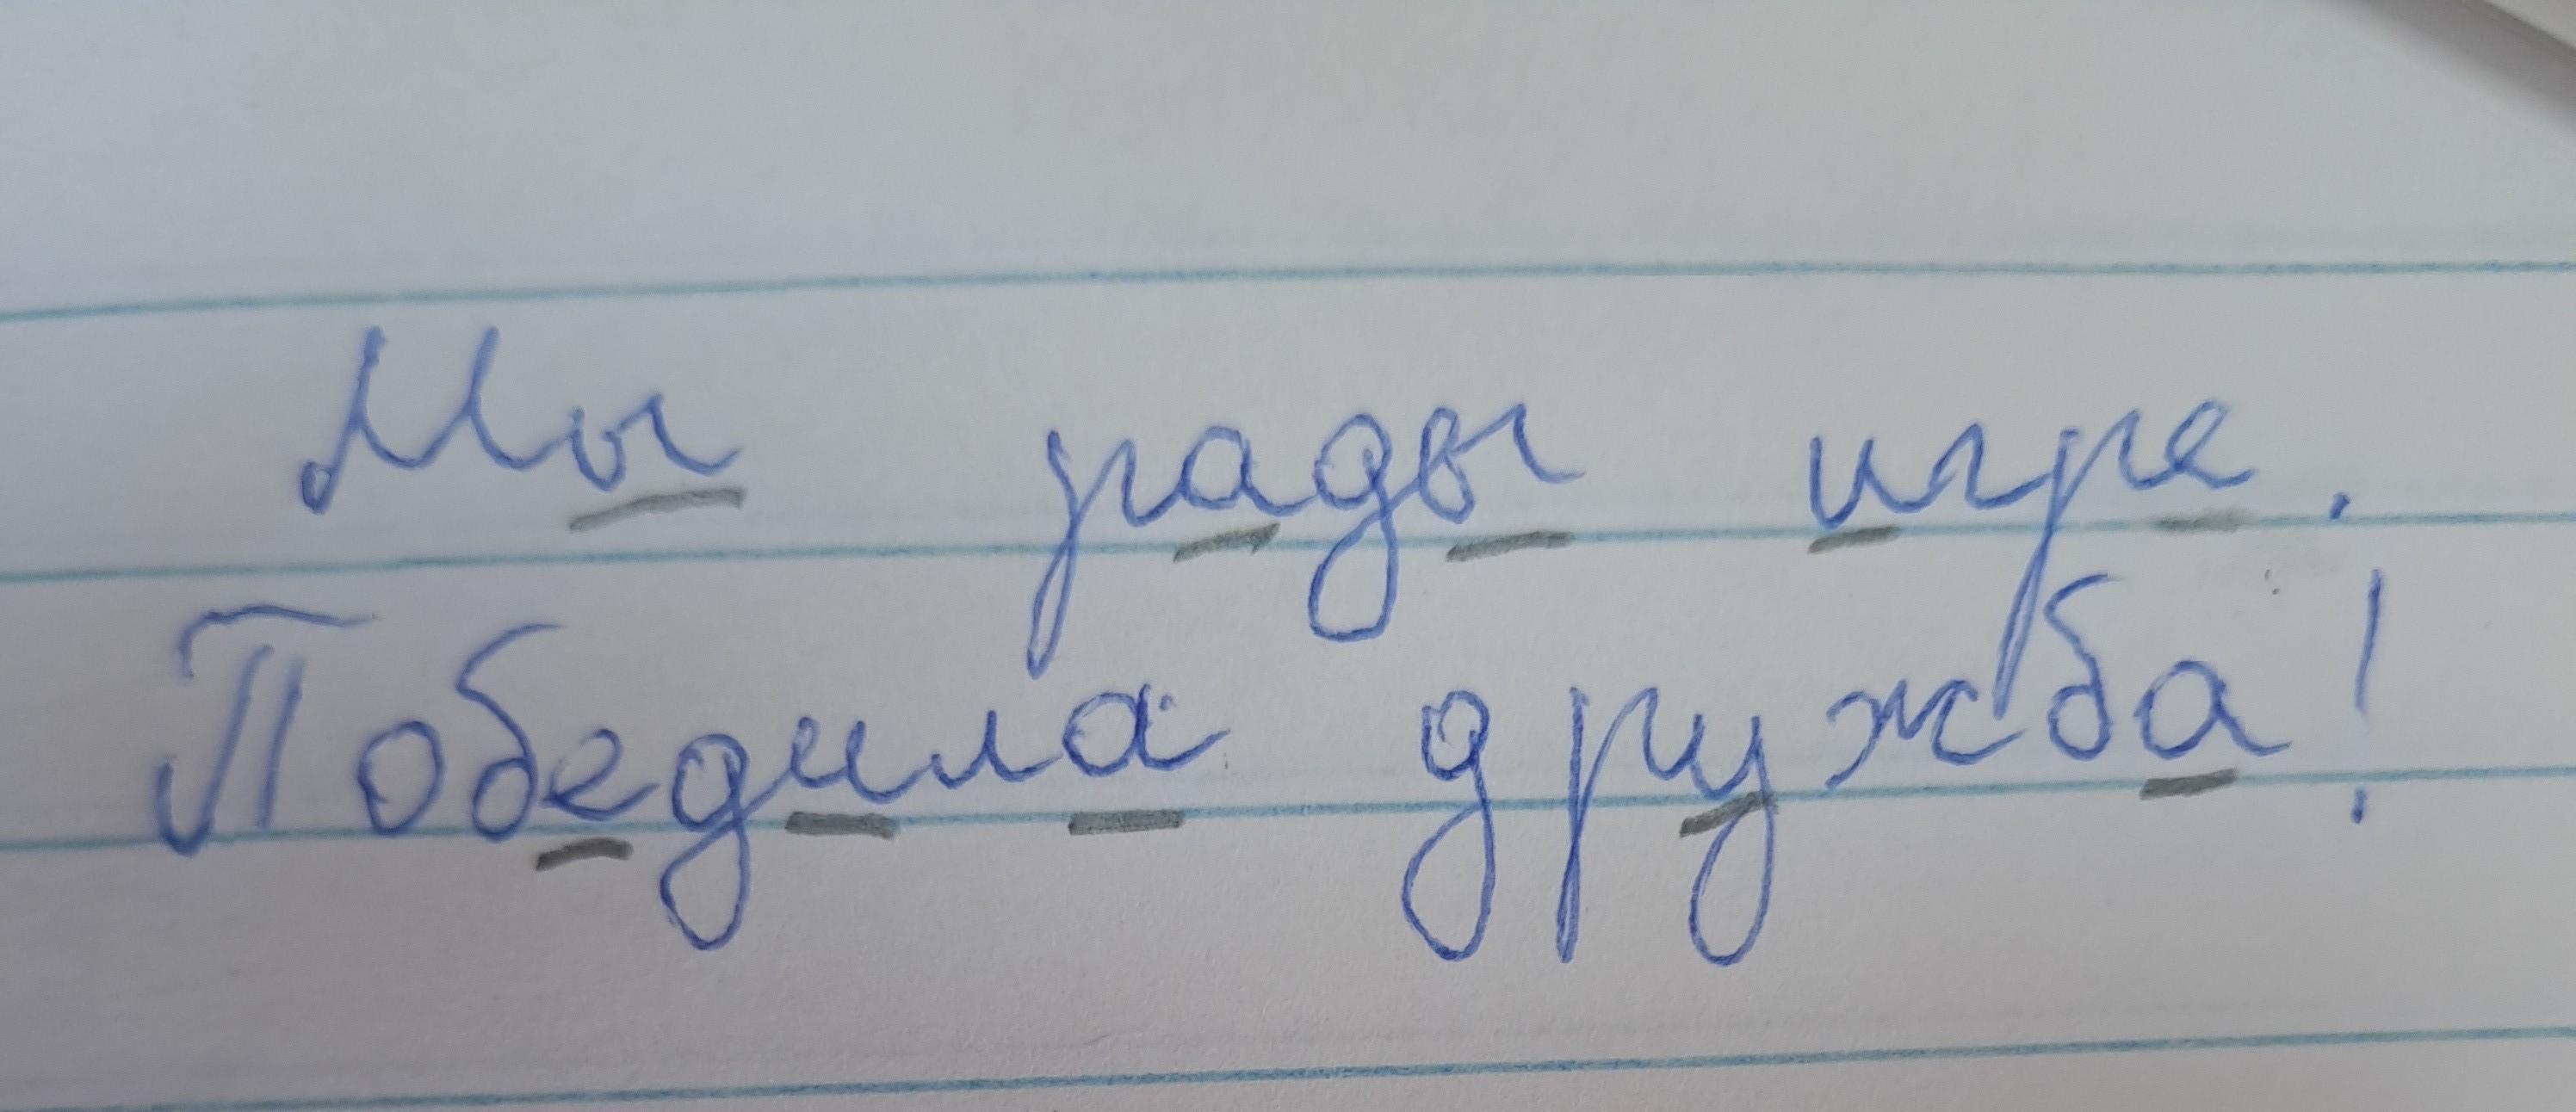 Мы рады игре.
Победила дружба!